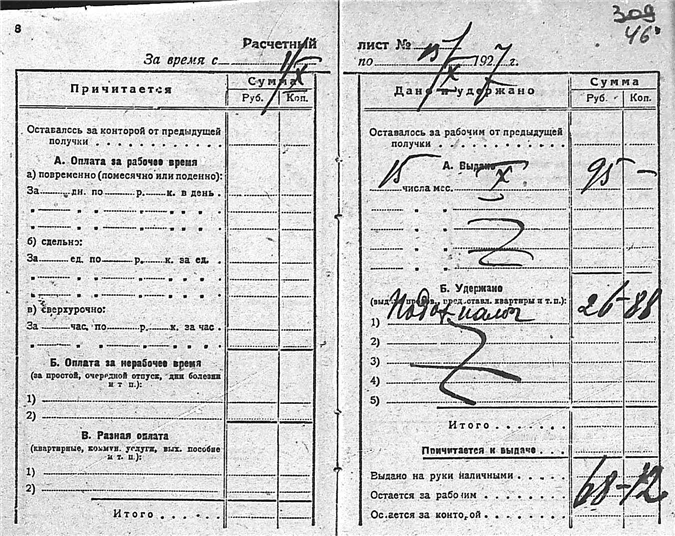 8
Расчетный
За время с 1/X
Причитается
Сумма
Руб. Коп.
Оставалось за конторой от предыдущей
получки
А. Оплата за рабочее время
а) повременно (помесячно или поденно):
За дн. по р. к. в день
„ „ „ „ „
„ „ „ „ „
б) сдельно:
За ед. по р. к. за ед.
„ „ „ „ „
„ „ „ „ „
в) сверхурочно:
За час. по р. к. за час
„ „ „ „ „
Б. Оплата за нерабочее время
(за простой, очередной отпуск, дни болезни
и т п.):
1)
2)
В. Разная оплата
(квартирные, коммун. услуги, вых. пособие
и т. п.):
1)
2)
Итого
309
46
лист №
по 15/X 1927 г.
Дано и удержано
Сумма
Руб. Коп.
Оставалось за рабочим от предыдущей
получки
А. Выдано
15 числа мес. X 95 —
„ „ „
„ „ „
„ „ „
Б. Удержано
(выдача предв., предоставл. квартиры и т. п.):
1) Подох налог 26-88
2)
3)
4)
5)
Итого
Причитается к выдаче
Выдано на руки наличными
Остается за рабочим 68-12
Остается за конторой